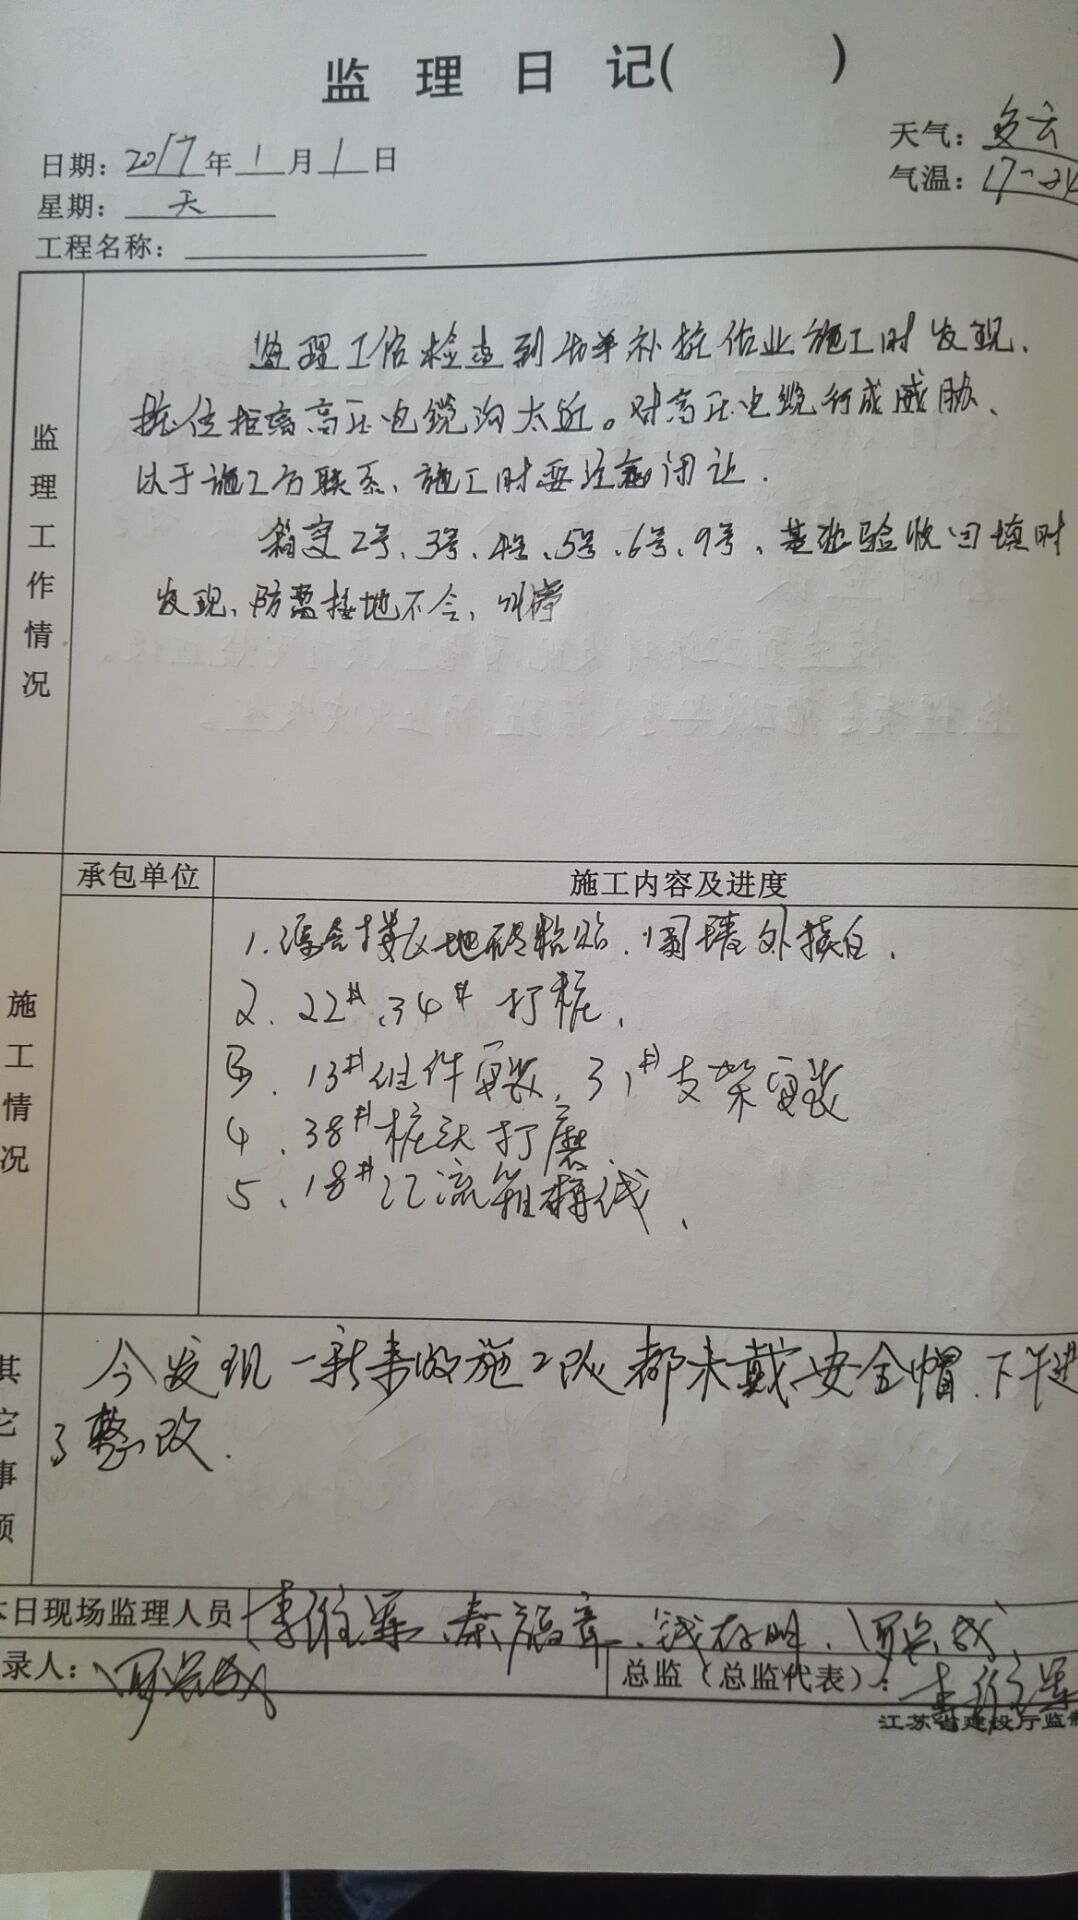 监理日记( )
天气：多云
日期：2017年1月1日
气温：17-24
星期：天
工程名称：
监理工作情况
监理工作检查到 补桩作业施工时发现、
桩位距离高压电缆沟太近。对高压电缆行成威胁、
以于施工方联系、施工时要注意闭让.
箱变2号、3号、4号、5号、6号、9号、基础验收回填时
发现、防雷接地不合、
承包单位
施工内容及进度
施工情况
1.综合楼 地砖粘贴.围墙外抹白.
2、22#、34#打桩、
3、13#组件安装、31#支架安装
4、38#桩头打磨
5、18#汇流箱接线、
其它事项
今发现一新来的施工队都未戴安全帽.下午进
了整改.
本日现场监理人员 李维军、秦福章、钱存明、
录人：
总监（总监代表）：李维军
江苏省建设厅监制